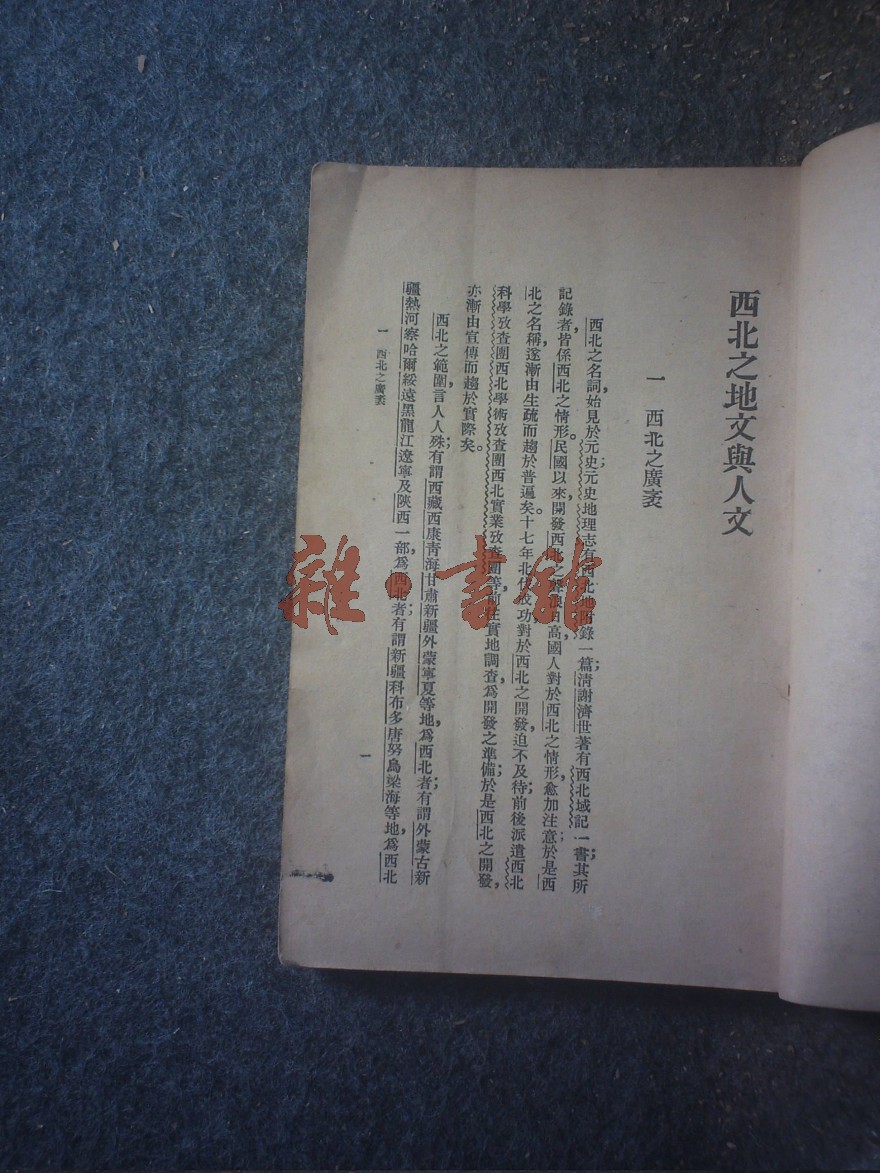 西北之地文與人文
一 西北之廣袤
西北之名詞,始見於元史元史地理志有西北地附錄一篇;清謝濟世著有西北域記一書;其所
記錄者,皆係西北之情形。民國以來,開發西北之聲浪日高,國人對於西北之情形,愈加注意,於是西
北之名稱,遂漸由生疏而趨於普遍矣。十七年北伐成功,對於西北之開發,迫不及待,前後派遣西北
科學攷查團西北學術攷查團西北實業攷查團等前往實地調查,爲開發之準備;於是西北之開發,
亦漸由宣傳而趨於實際矣。
西北之範圍,言人人殊;有謂西藏西康靑海甘肅新疆外蒙寧夏等地,爲西北者;有謂外蒙古新
疆熱河察哈爾綏遠黑龍江遼寧及陝西一部,爲西北者;有謂新疆科布多唐努烏梁海等地,爲西北
一 西北之廣袤
一
雜·書館